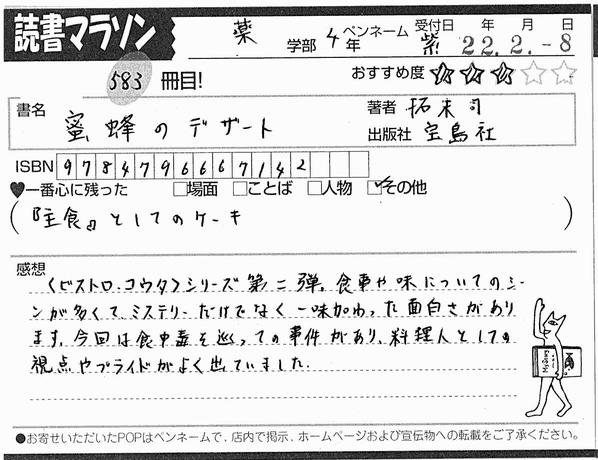 読書マラソン
薬 学部 4年 ペンネーム 紫 受付日 年 月 日 22.2.-8
583 冊目! おすすめ度 ★★★☆☆
書名 蜜蜂のデザート
著者 拓未司
出版社 宝島社
ISBN 9784796667142
♥一番心に残った □場面 □ことば □人物 ☑その他
(『主食』としてのケーキ)
感想
〈ビストロ・コウタ〉シリーズ第二弾。食事や味についてのシー
ンが多くて、ミステリーだけでなく一味加わった面白さがあり
ます。今回は食中毒を巡っての事件があり、料理人としての
視点やプライドがよく出ていました。
●お寄せいただいたPOPはペンネームで、店内で掲示、ホームページおよび宣伝物への転載をご了承ください。